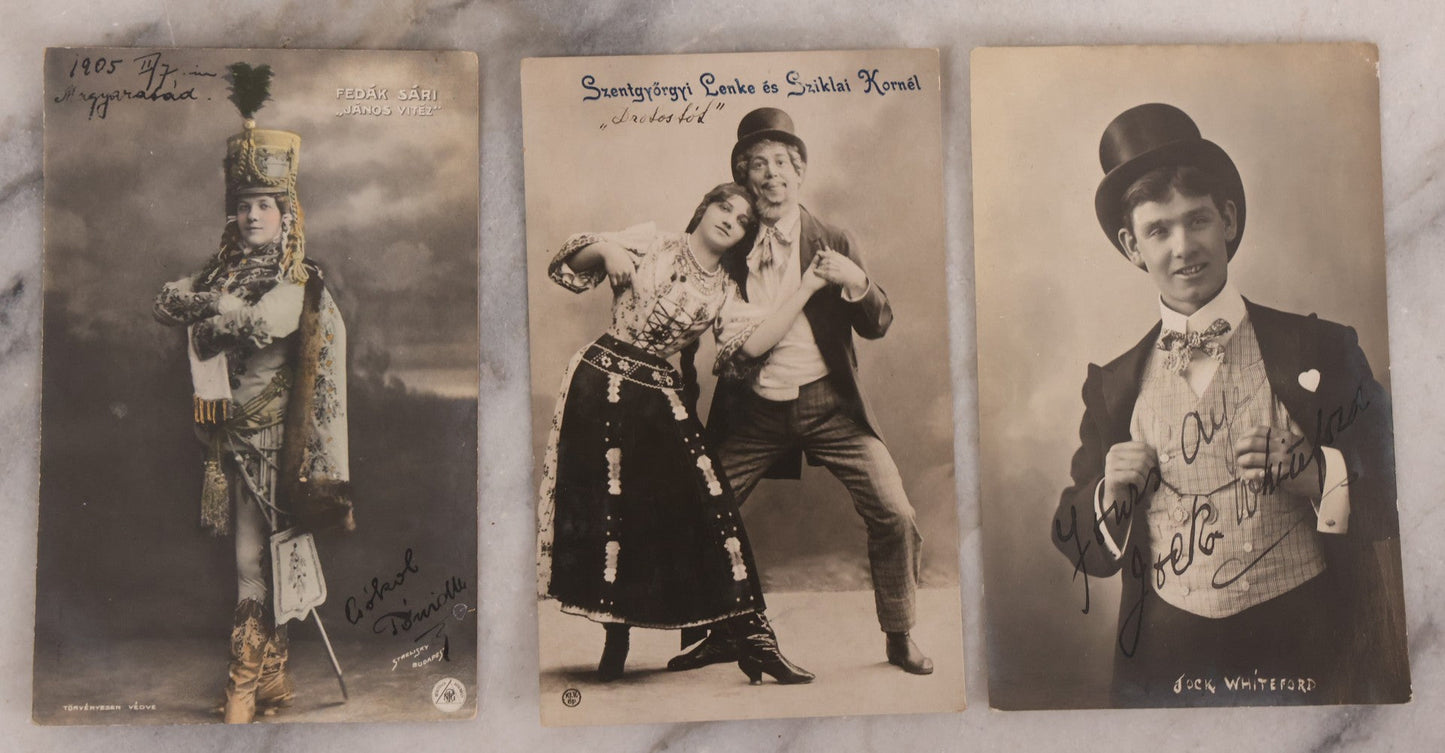 1905 II/7.-in
FEDÁK SÁRI
„JÁNOS VITÉZ"
Csókol
STRELISKY
BUDAPEST
TÖRVÉNYESEN VÉDVE
Szentgyörgyi Lenke és Sziklai Kornél
„Drótostót"
Yours Aye
Jock Whiteford
JOCK WHITEFORD